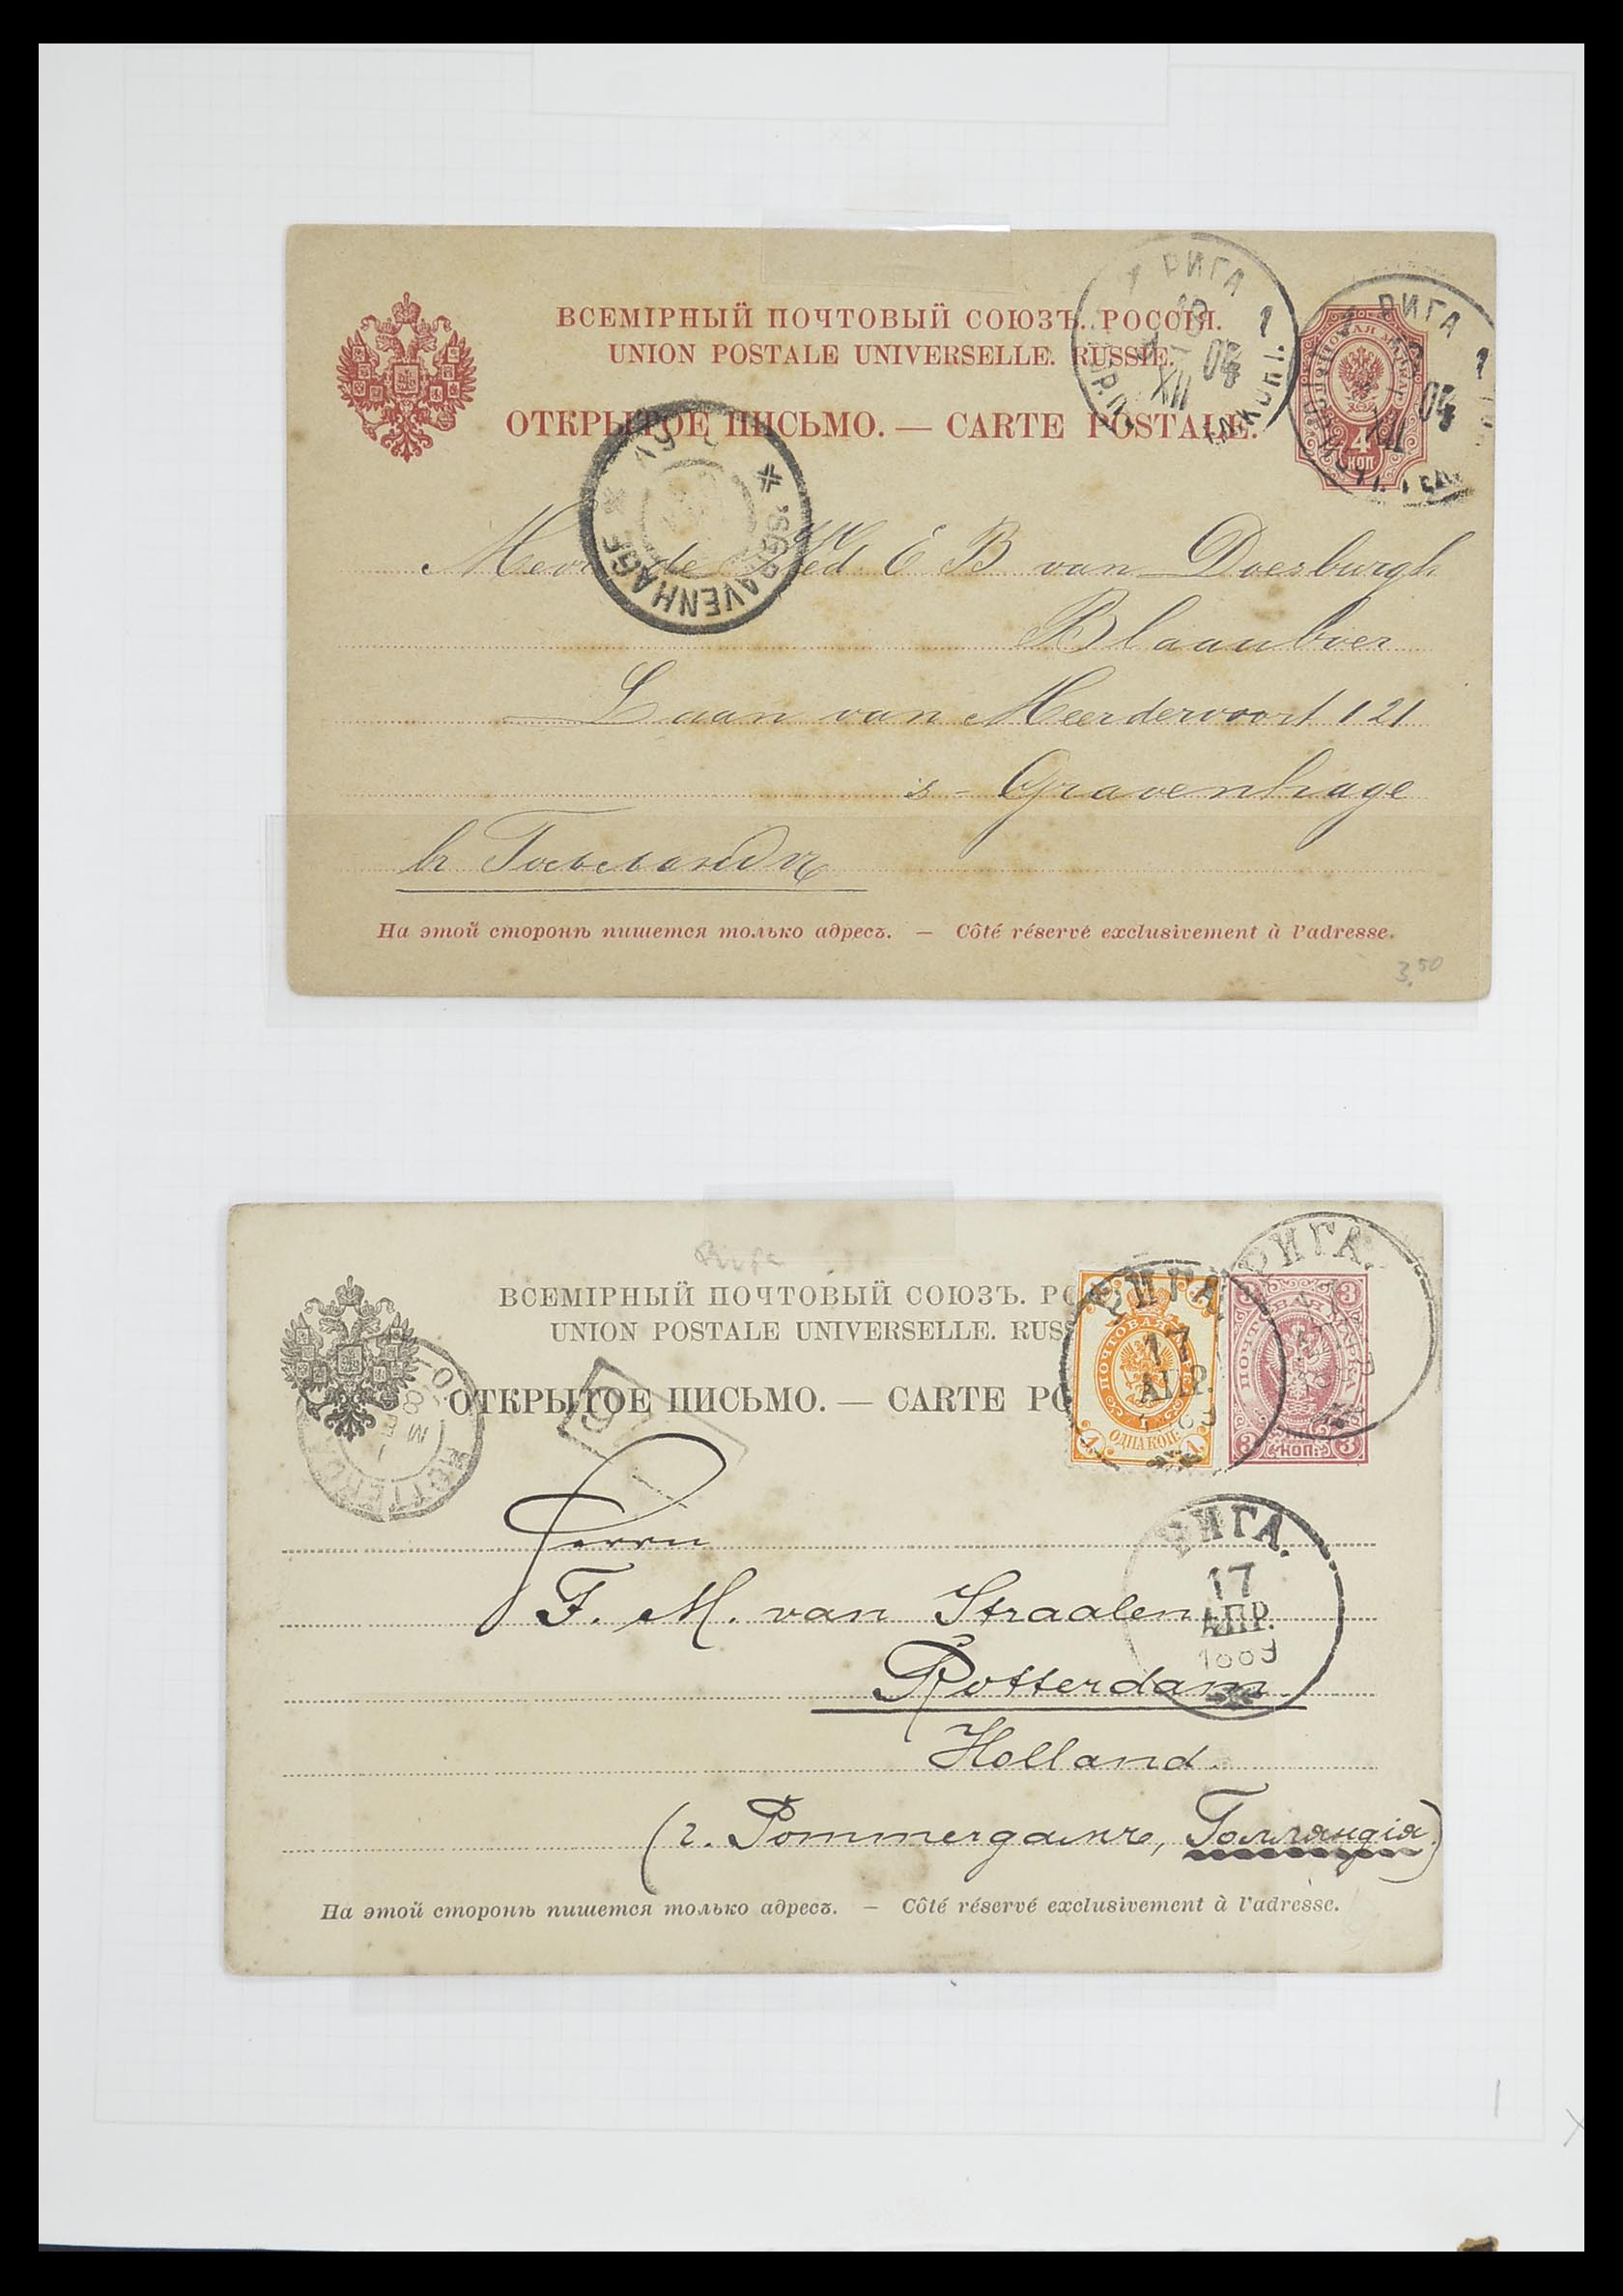 ВСЕМІРНЫЙ ПОЧТОВЫЙ СОЮЗЪ. РОССІЯ.
UNION POSTALE UNIVERSELLE. RUSSIE.
ОТКРЫТОЕ ПИСЬМО. — CARTE POSTALE.
1 РИГА 1
XII 04
1 РИГА 1
XII 04
ПОЧТОВАЯ МАРКА
4 КОП
* 'S GRAVENHAGE *
Wed E B van Doesburgh
Blaauboer
Laan van Meerdervoort 121
s-Gravenhage
въ Гольландiѣ
На этой сторонѣ пишется только адресъ. — Côté réservé exclusivement à l'adresse.
3.50
Riga
ВСЕМІРНЫЙ ПОЧТОВЫЙ СОЮЗЪ. РО
UNION POSTALE UNIVERSELLE. RUSS
ОТКРЫТОЕ ПИСЬМО. — CARTE PO
РИГА
17
АПР.
ПОЧТОВАЯ МАРКА
ОДНА КОП.
1 1
РИГА.
ПОЧТОВАЯ МАРКА
3 КОП. 3
Herrn
F. M. van Straalen
РИГА.
17
АПР.
1889
Rotterdam
Holland.
(г. Роттердамъ, Голландія)
На этой сторонѣ пишется только адресъ. — Côté réservé exclusivement à l'adresse.